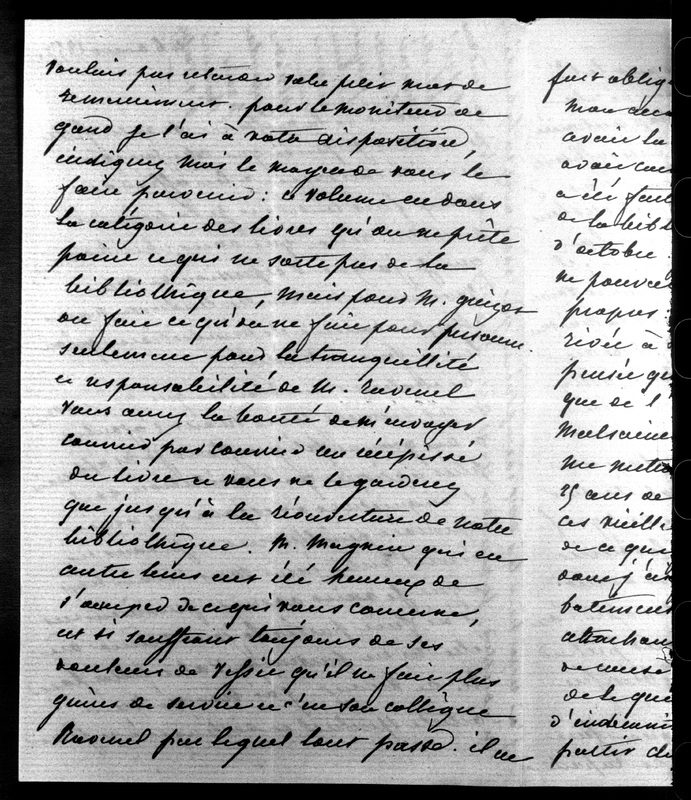 voulais pas retarder votre plein mot de
remerciement. pour le moniteur de
gand je l'ai à votre disposition,
indiquez mois le moyen de vous le
faire parvenir : ce volume est dans
la catégorie des livres qu'on ne prête
point ce qui ne sorte pas de la
bibliothèque, mais pour M.
on fait ce qu'on ne fait pour personne.
seulement pour la tranquillité
et responsabilité de M. Ravenel
vous aurez la bonté de m'envoyer
courrier par courrier un récépissé
du livre et vous ne le garderez
que jusqu'à la réouverture de notre
bibliothèque. M. Magnin qui en
autre tems eut été heureux de
s'occuper de ce qui vous concerne,
est si souffrant toujours de ses
douleurs de vessie qu'il ne fait plus
guères de service et c'est son collègue
Ravenel par lequel tout passe. il est
fort oblig
mon
avoir la
avoir
a été fait
de la bibl
d'octobre.
ne pouvez
propos :
rivée à
pensée qu
que de l'
malsaine
me mettre
25 ans de
ces vieill
de ce que
dont j'ai
batiment
attachan
de
de le qu
d'indemni
partir de